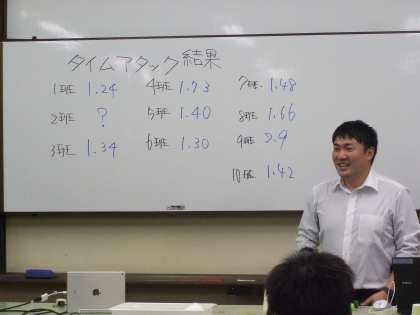 タイムアタック 結果
1班 1.24
2班 ?
3班 1.34
4班 1.73
5班 1.40
6班 1.30
7班 1.48
8班 1.66
9班 2.9
10班 1.42